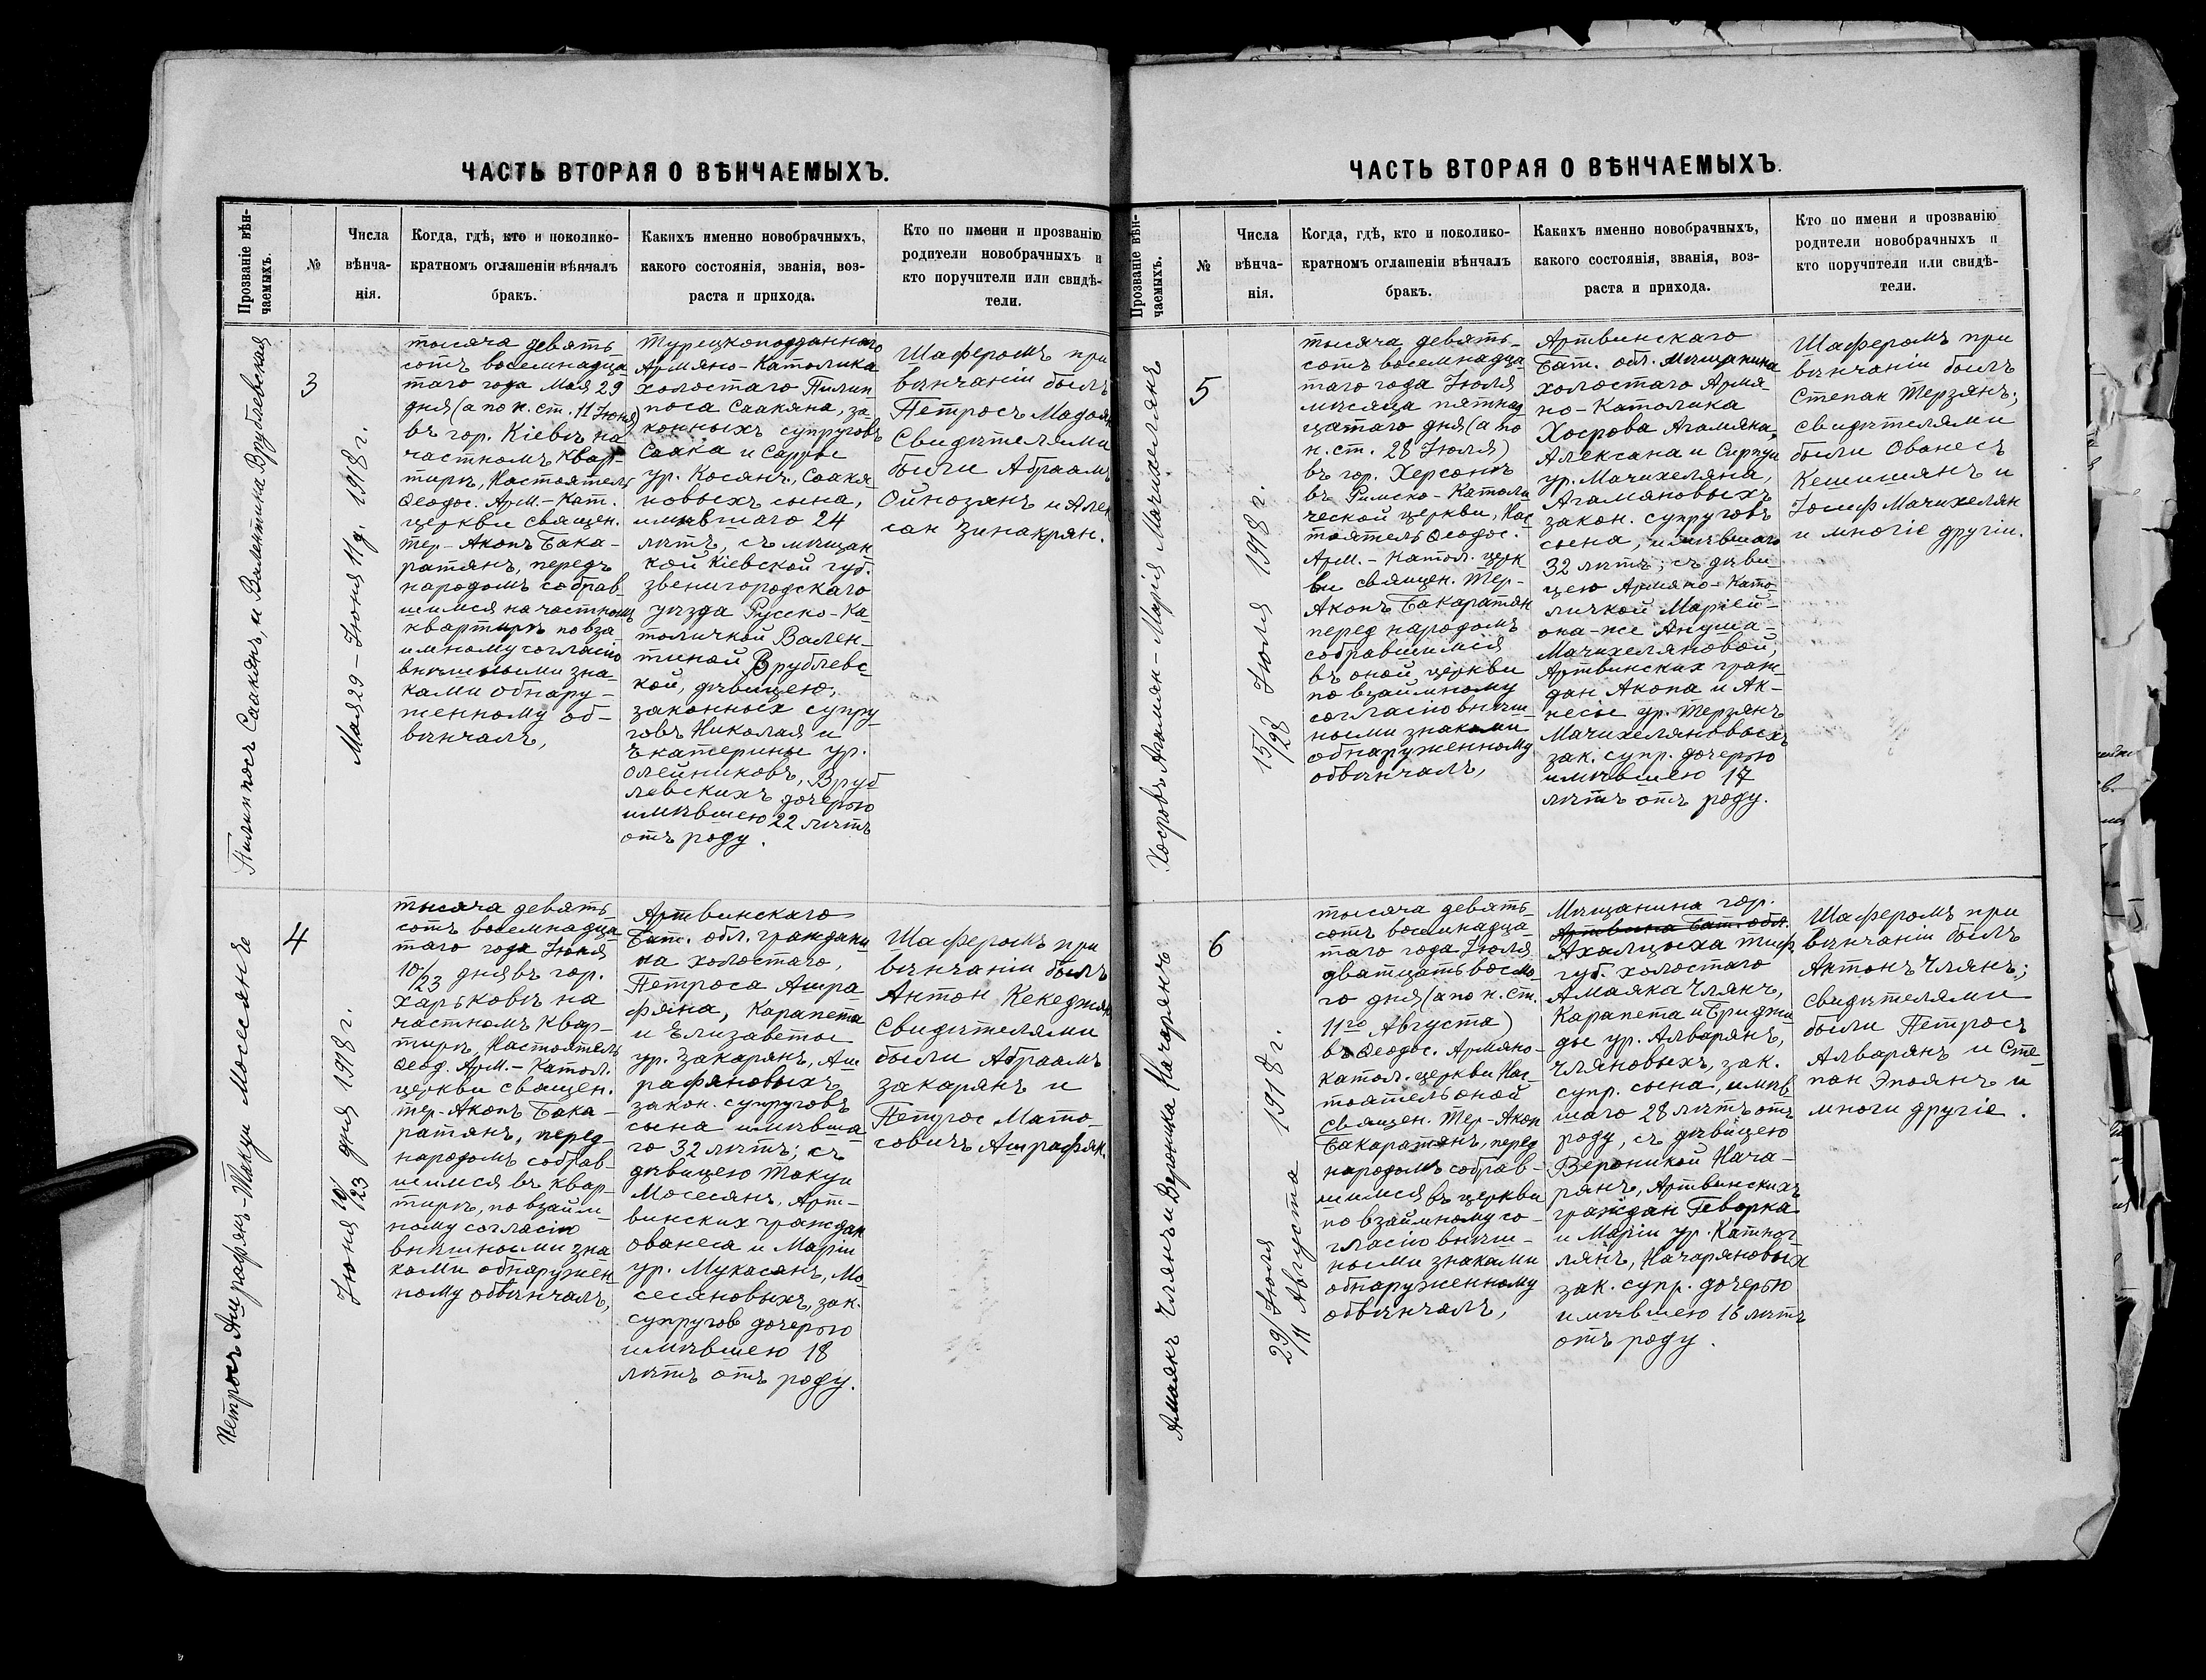 ЧАСТЬ ВТОРАЯ О ВѢНЧАЕМЫХЪ.
Прозваніе вѣн-
чаемыхъ.
№
Числа
вѣнча-
нія.
Когда, гдѣ, кто и поколико-
кратномъ оглашеніи вѣнчалъ
бракъ.
Какихъ именно новобрачныхъ,
какого состоянія, званія, воз-
раста и прихода.
Кто по имени и прозванію
родители новобрачныхъ и
кто поручители или свидѣ-
тели.
Пилиппосъ Саакянъ, и Валентина Врублевская
3
Мая 29 – Іюня 11 д. 1918 г.
тысяча девять-
сотъ восемнадца
таго года Мая 29
дня (а по н. ст. 11 Іюня)
въ гор. Кіевѣ на
частномъ квар-
тирѣ, Настоятель
Ѳеодос. Арм.-Кат.
церкви священ.
тер-Акопъ Бака-
ратянъ, передъ
народомъ собрав-
шимся на частномъ
квартирѣ по вза-
имному согласію
внѣшными зна-
ками обнару-
женному об-
вѣнчалъ,
турецкоподданнаго
Армяно-Католика
холостаго Пилип
поса Саакяна, за-
конныхъ супруговъ
Саака и Сарры
ур. Косянъ, Саакя-
новыхъ сына,
имѣвшаго 24
лѣтъ, съ мѣщан
кой Кіевской губ.
звенигородскаго
уѣзда Русско-Ка-
толичкой Вален-
тиной Врублевс
кой, дѣвицею,
законных супру
говъ Николая и
Екатерины ур.
Олейниковъ, Вруб
левскихъ дочерью
имѣвшею 22 лѣтъ
отъ роду.
Шаферомъ при
вѣнчаніи былъ
Петросъ Мадоян
Свидѣтелями
были Абраамъ
Ойнозянъ и Алек
сан Зинакрян.
Петросъ Ашрафянъ – Такуи Мосесянъ
4
Іюня 10/23 дня 1918 г.
тысяча девять-
сотъ восемнадца
таго года Іюня
10/23 дня въ гор.
Харьковѣ на
частномъ квар-
тирѣ, Настоятель
Ѳеод. Арм.-Катол.
церкви священ.
тер-Акопъ Бака-
ратянъ, перед
народомъ собрав-
шимся въ квар-
тирѣ, по взаим-
ному согласію
внѣшными зна
ками обнаружен
ному обвѣнчалъ,
Артвинскаго
Бат. обл. граждани
на холостаго,
Петроса Ашра-
фяна, Карапета
и Елизаветы
ур. Закарянъ, Аш
рафяновыхъ
закон. супруговъ
сына имѣвша
го 32 лѣтъ; съ
дѣвицею Такуи
Мосесянъ, Арт-
винских граждан
Ованеса и Маріи
ур. Мукасянъ, Мо
сесяновыхъ, зак.
супругов дочерью
имѣвшею 18
лѣтъ отъ роду.
Шаферомъ при
вѣнчаніи былъ
Антон Кекеджян
Свидѣтелями
были Абраамъ
Закарянъ и
Петрос Мато-
совичъ Ашрафян.
ЧАСТЬ ВТОРАЯ О ВѢНЧАЕМЫХЪ.
Прозваніе вѣн-
чаемыхъ.
№
Числа
вѣнча-
нія.
Когда, гдѣ, кто и поколико-
кратномъ оглашеніи вѣнчалъ
бракъ.
Какихъ именно новобрачныхъ,
какого состоянія, званія, воз-
раста и прихода.
Кто по имени и прозванію
родители новобрачныхъ и
кто поручители или свидѣ-
тели.
Хосровъ Агамян – Марія Мачихелянъ
5
15/28 Іюля 1918 г.
тысяча девять-
сотъ восемнадца
таго года Іюля
мѣсяца пятнад
цатаго дня (а по
н. ст. 28 Іюля)
въ гор. Херсонѣ
въ Римско-Католи
ческой церкви, Нас
тоятель Ѳеодос.
Арм.-Катол. церк
ви священ. Тер-
Акопъ Бакаратян
перед народомъ
собравшимся
въ оной церкви
по взаимному
согласію внѣш-
ными знаками
обнаруженному
обвѣнчалъ,
Артвинскаго
Бат. обл. мѣщанина
холостаго Армя
но-Католика
Хосрова Агамяна,
Алексана и Сирпуи
ур. Мачихеляна,
Агамяновыхъ
закон. супруговъ
сына, имѣвшаго
32 лѣтъ; съ дѣви
цею Армяно-Като
личкой Маріей-
она-же Ануша-
Мачихеляновой,
Артвинских граж
дан Акопа и Ак-
несіе ур. Терзянъ
Мачихеляновыхъ
зак. супр. дочерью
имѣвшею 17
лѣтъ отъ роду.
Шаферомъ при
вѣнчаніи былъ
Степак Терзянъ;
свидѣтелями
были Ованесъ
Кешишянъ и
Іосиф Мачихелян
и многіе другіи.
Амаякъ Члянъ и Вероника Качарянъ
6
29/11 Іюля Августа 1918 г.
тысяча девять-
сотъ восемнадца-
таго года Іюля
дватцать восмо
го дня (а по н. ст.
11го Августа)
въ Ѳеодос. Армяно-
катол. церкви Нас-
тоятель оной
священ. Тер-Акоп
Бакаратянъ, перед
народомъ собрав-
шимся въ церкви
по взаимному со-
гласію внѣш-
ными знаками
обнаруженному
обвѣнчалъ,
Мѣщанина гор.
Артвина Бат. обл.
Ахалцыха Тиф.
губ. холостаго
Амаяка Члянъ,
Карапета и Бриджи
ды ур. Алварянъ,
Чляновыхъ, зак.
супр. сына, имѣв
шаго 28 лѣтъ отъ
роду, съ дѣвицею
Вероникой Кача-
рянъ, Артвинскихъ
граждан Геворка
и Маріи ур. Катног
лянъ, Качаряновых
зак. супр. дочерью
имѣвшею 16 лѣтъ
отъ роду.
Шаферомъ при
вѣнчаніи былъ
Антонъ Члянъ;
свидѣтелями
были Петросъ
Алварянъ и Сте-
пан Эпоянъ и
многи другіе.